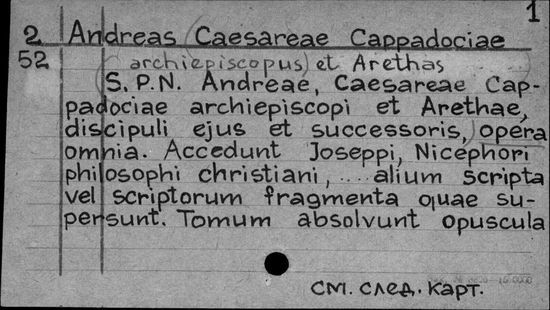 1
2 Andreas (Caesareae Cappadociae
52 archiepiscopus) et Arethas
(S. P. N. Andreae, Caesareae Cap-
padociae archiepiscopi et Arethae,
discipuli ejus et successoris,) opera
omnia. Accedunt Joseppi, Nicephori
philosophi christiani, ... alium scripta
vel scriptorum fragmenta quae su-
persunt. Tomum absolvunt opuscula
см. след. карт.